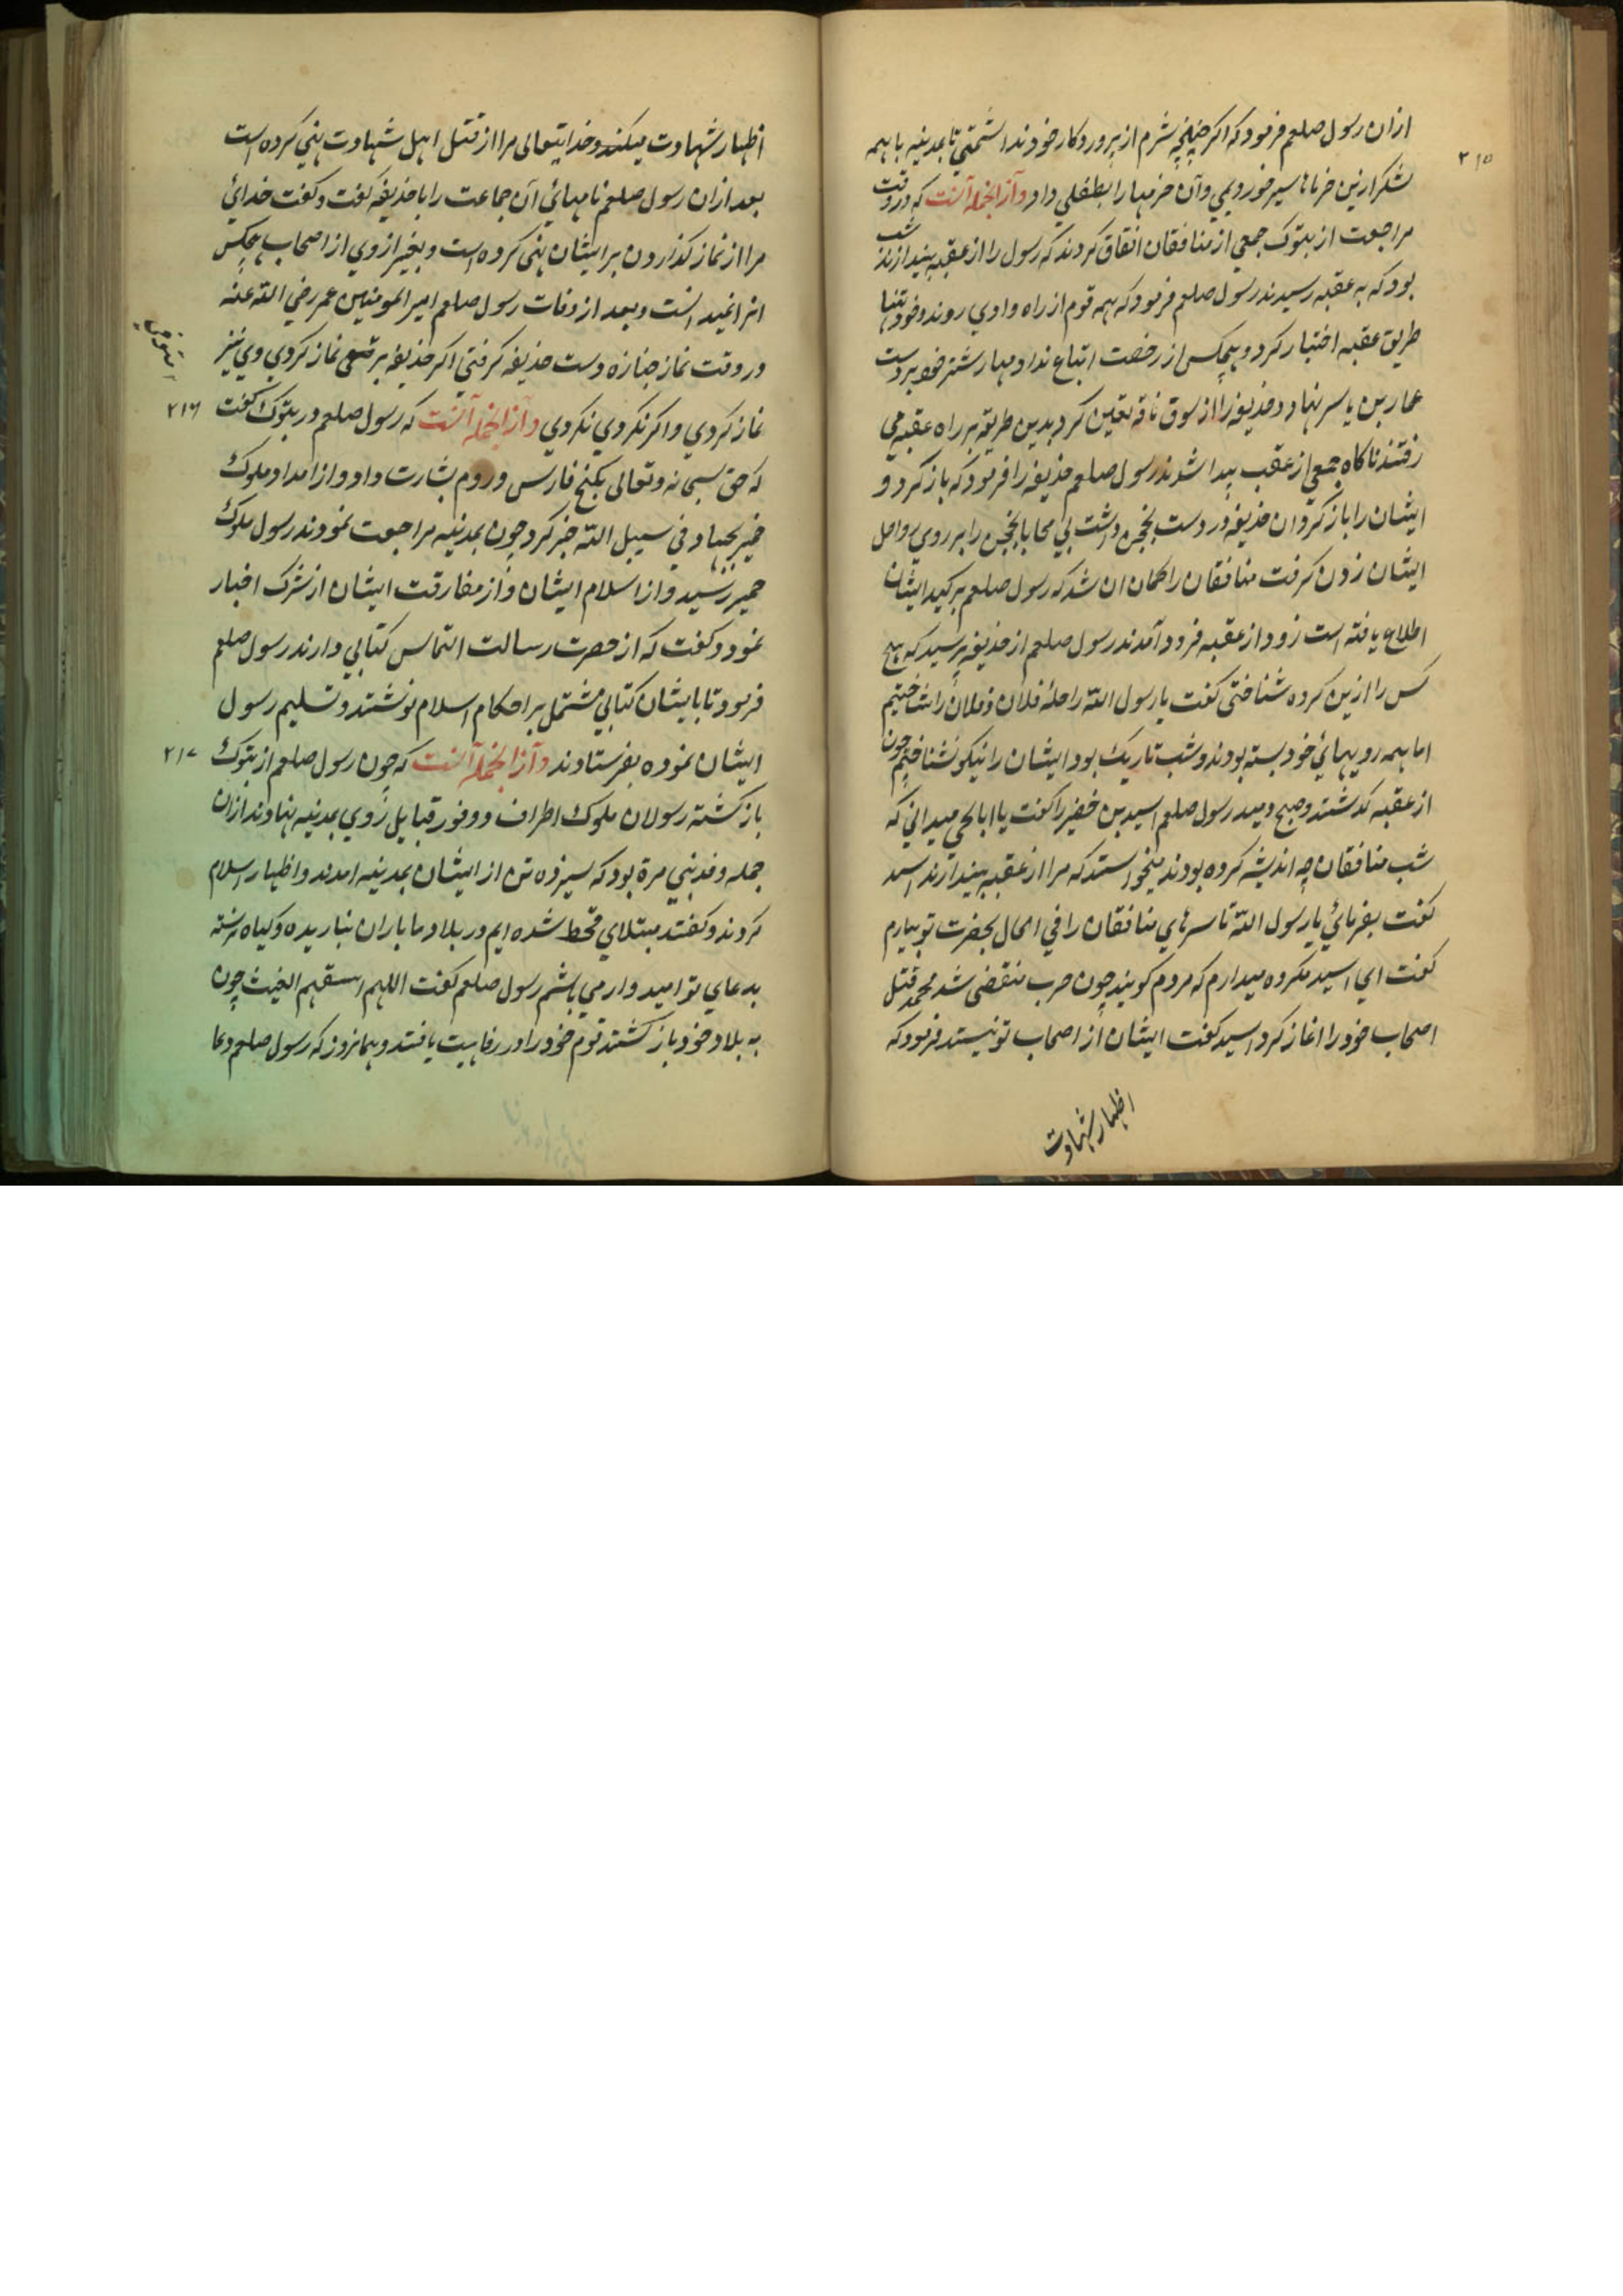 ازان رسول صلعم فرمود که اکر چنانچه شرم از پروردکار خود نداشتمتي تا بمدينه با همه
۲۱۵
لشکر ازين خرماها سير خوردیمي وآن خرمهارا بطفلي داد وآز انجمله آنست که در وقت
مراجعت از بتوک جمعي از منافقان اتفاق کردند که رسول را از عقبه بيندازند شب
بود که به عقبه رسيدند رسول صلعم فرمود که همه قوم از راه وادي روند وخود تنها
طريق عقبه اختيار کرد و هيچکس از رخصت اتباع نداد ومهار شتر خود بر دست
عمار بن ياسر نهاد وحذيفه را از سوق ناقه تعين کرد بدين طريقه بر راه عقبه مي
رفتند ناکاه جمعي از عقب پيدا شدند رسول صلعم حذيفه را فرمود که باز کرد و
ايشان را باز کردان حذيفه در دست محجن داشت بي محابا محجن را بر روي رواحل
ايشان زدن کرفت منافقان را کمان ان شد که رسول صلعم بر کيد ايشان
اطلاع يافته است زود از عقبه فرود آمدند رسول صلعم از حذيفه پرسيد که هيچ
کس را ازين کروه شناختی کفت يا رسول الله راحلۀ فلان وفلان را شناختيم
اما همه رويهائ خود بسته بودند وشب تاريک بود ايشان را نيکو نشناختم چون
از عقبه کذشتند وصبح دميد رسول صلعم اسيد بن خضير را کفت يا ابا يحی ميداني که
شب منافقان چه انديشه کرده بودند ميخواستند که مرا از عقبه بيندازند اسيد
کفت بفرمائي يا رسول الله تا سرهاي منافقان را في الحال بحضرت تو بيارم
کفت اي اسيد مکروه ميدارم که مردم کويند چون حرب منقضی شد محمد قتل
اصحاب خود را اغاز کرد اسيد کفت ايشان از اصحاب تو نيستند فرمود که
اظهار شهادت
اظهار شهادت ميکنند وخدايتعالی مرا از قتل اهل شهادت نهي کرده است
بعد ازان رسول صلعم نامهائي آن جماعت را با حذيفه کفت وکفت خدائ
مرا از نماز کذاردن بر ايشان نهی کرده است وبغير از وي از اصحاب هيچکس
انرا نميدانست وبعد از وفات رسول صلعم امير المومنين عمر رضي الله عنه
در وقت نماز جنازه دست حذيفه کرفتی اکر حذيفه بر متوفی نماز کردي وي نيز
متوفی
نماز کردي واکر نکردي نکردي وآز انجمله آنست که رسول صلعم در بتوک کفت
۲۱۶
که حق سبحانه وتعالی بکنج فارس وروم بشارت داد واز امداد ملوک
حمير بجهاد في سبيل الله خبر کرد چون بمدينه مراجعت نمودند رسول ملوک
حمير رسيد واز اسلام ايشان واز مفارقت ايشان از شرک اخبار
نمود وکفت که از حضرت رسالت التماس کتابي دارند رسول صلعم
فرمود تا با ايشان کتابي مشتمل بر احکام اسلام نوشتند وتسليم رسول
ايشان نموده بفرستادند وآز انجمله آنست که چون رسول صلعم از بتوک
۲۱۷
باز کشته رسولان ملوک اطراف ووفور قبايل روي بمدينه نهادند ازان
جمله وفد بني مرة بود که سيزده تن از ايشان بمدينه امدند واظهار اسلام
کردند وکفتند مبتلاي قحط شده ايم ودر بلاد ما باران نباريده وکياه نرسته
بدعاي تو اميدوار مي باشم رسول صلعم کفت اللهم اسقهم الغيث چون
به بلاد خود باز کشتند قوم خود را در رفاهيت يافتند وهمانروز که رسول صلعم دعا